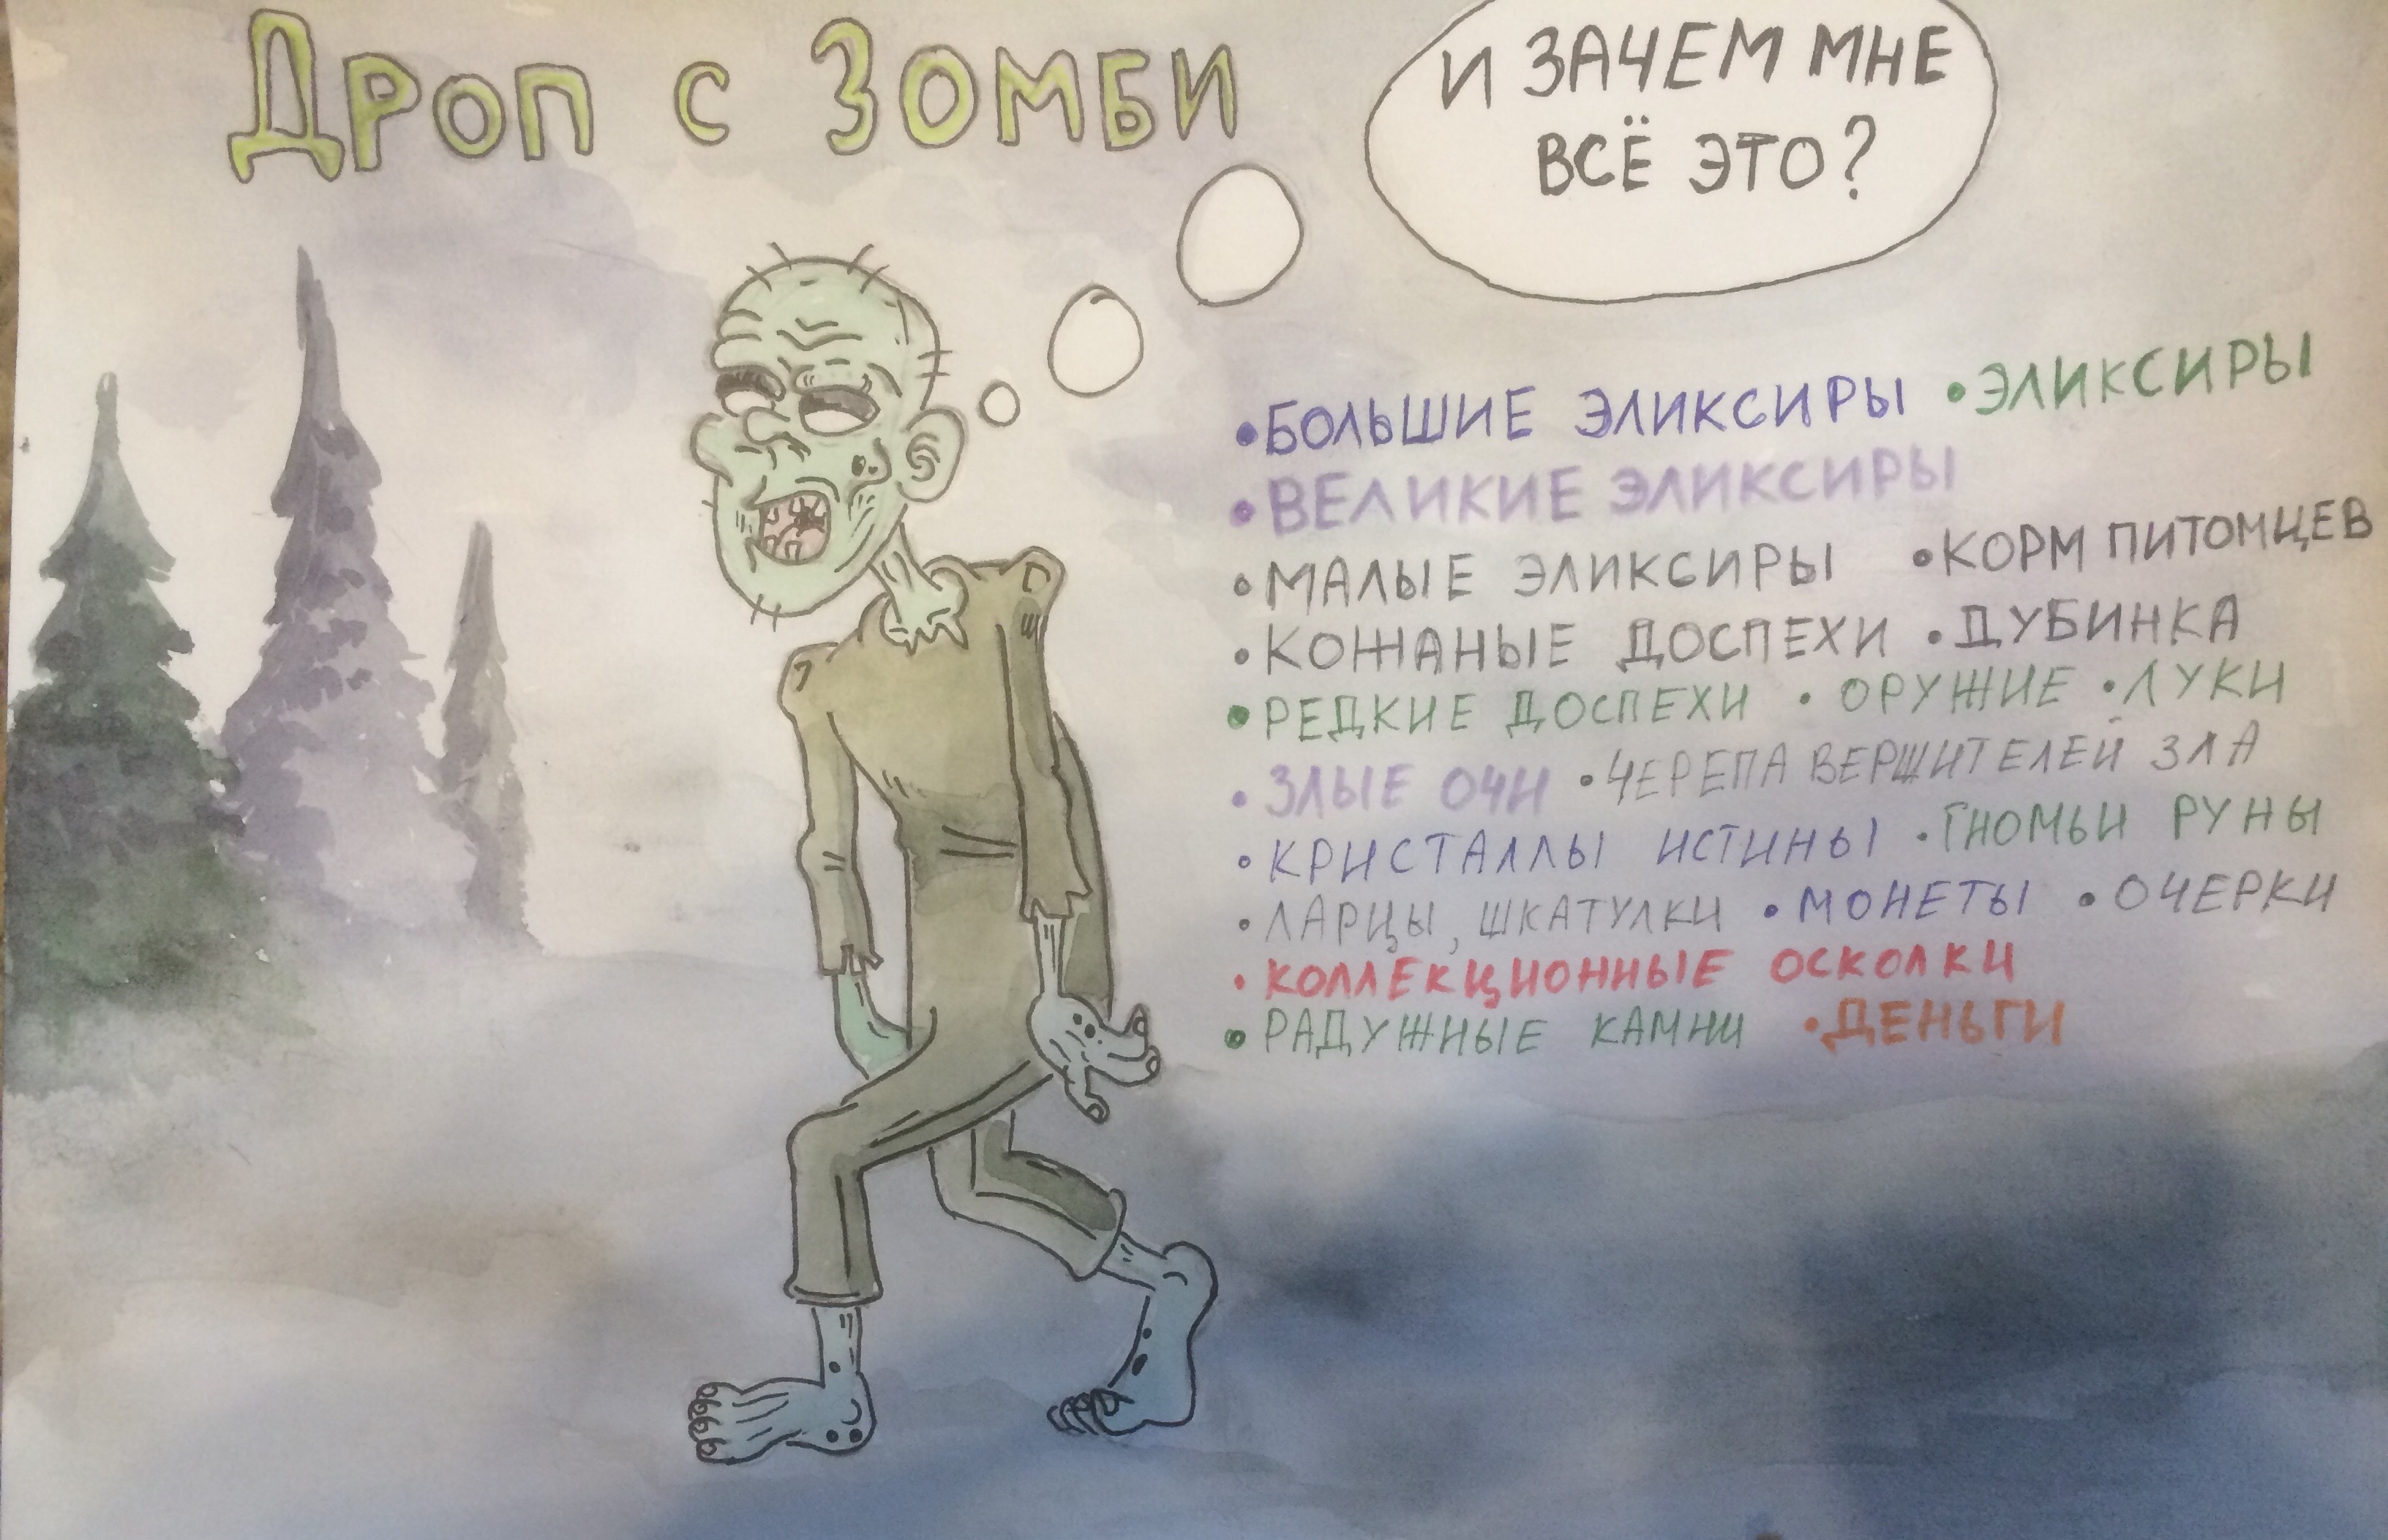 Дроп с Зомби
И ЗАЧЕМ МНЕ
ВСЁ ЭТО?
•БОЛЬШИЕ ЭЛИКСИРЫ •ЭЛИКСИРЫ
•ВЕЛИКИЕ ЭЛИКСИРЫ
•МАЛЫЕ ЭЛИКСИРЫ •КОРМ ПИТОМЦЕВ
•КОЖАНЫЕ ДОСПЕХИ •ДУБИНКА
•РЕДКИЕ ДОСПЕХИ •ОРУЖИЕ •ЛУКИ
•ЗЛЫЕ ОЧИ •ЧЕРЕПА ВЕРШИТЕЛЕЙ ЗЛА
•КРИСТАЛЛЫ ИСТИНЫ •ГНОМЬИ РУНЫ
•ЛАРЦЫ, ШКАТУЛКИ •МОНЕТЫ •ОЧЕРКИ
•КОЛЛЕКЦИОННЫЕ ОСКОЛКИ
•РАДУЖНЫЕ КАМНИ •ДЕНЬГИ